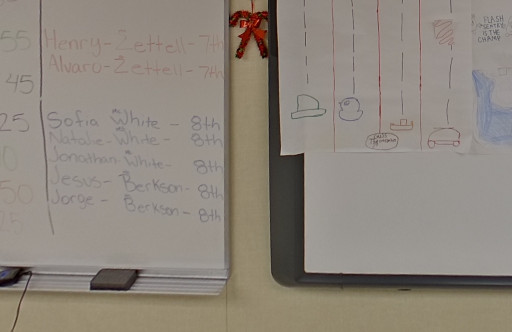 55
Henry - Zettell - 7th
Alvaro - Zettell - 7th
45
25
Sofia White - 8th
Natalie - White - 8th
Jonathan - White - 8th
Jesus - Berkson - 8th
50
Jorge - Berkson - 8th
FLASH
SENTRY
IS THE
CHAMP